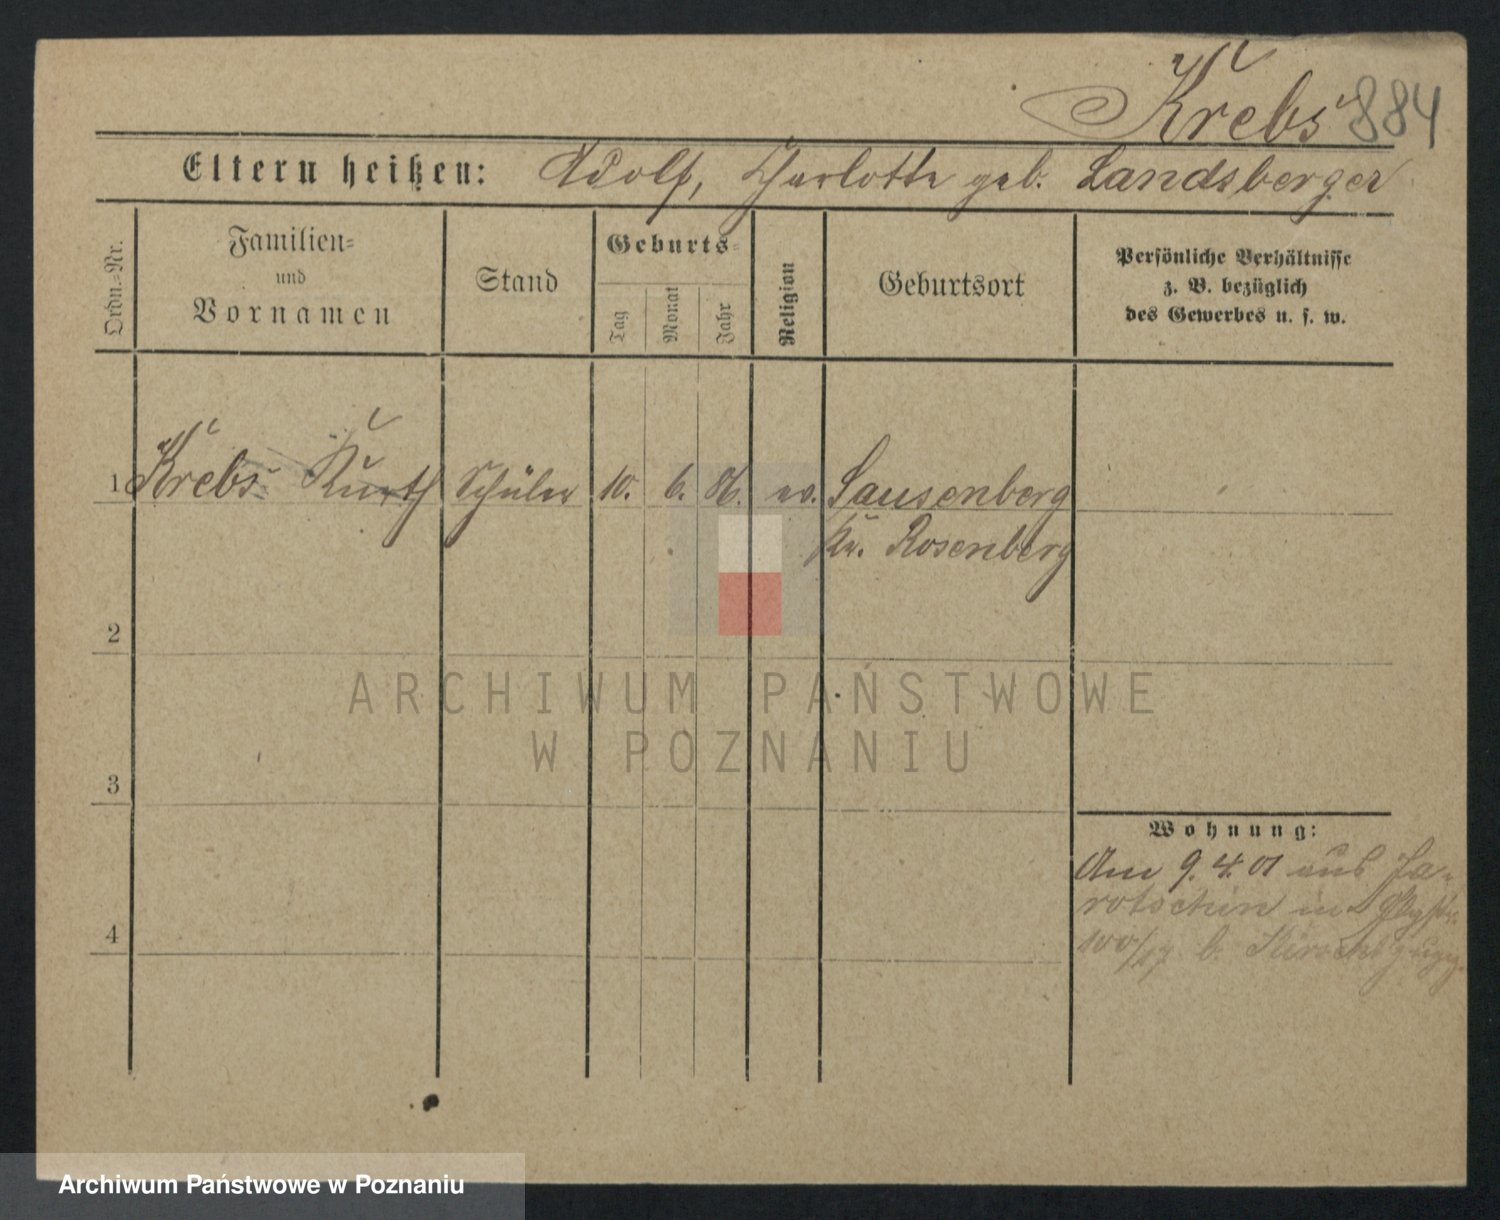 Krebs 884
Eltern heißen: Adolf, Charlotte geb. Landsberger
Ordn.=Nr.
Familien=
und
Vornamen
Stand
Geburts=
Tag
Monat
Jahr
Religion
Geburtsort
Persönliche Verhältnisse
z. B. bezüglich
des Gewerbes u. s. w.
1 Krebs Kurth Schüler 10. 6. 86. ev. Sausenberg
Kr. Rosenberg
2
3
4
Wohnung:
Am 9.4.01 aus Ja-
rotschin in
b.
ARCHIWUM PAŃSTWOWE
W POZNANIU
Archiwum Państwowe w Poznaniu